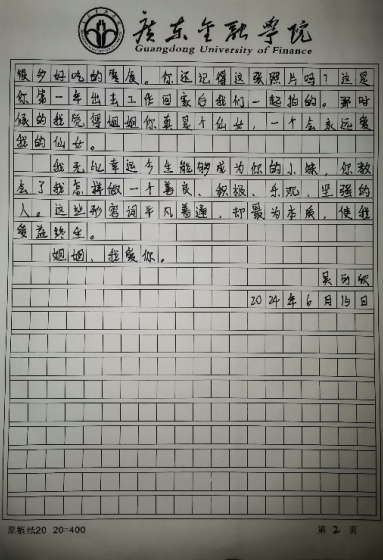 广东金融学院
Guangdong University of Finance
很多好吃的零食。你还记得这张照片吗？这是
你第一年出去工作回家后我们一起拍的。那时
候的我觉得姐姐你真是个仙女，一个会永远爱
我的仙女。
我无比幸运今生能够成为你的小妹，你教
会了我怎样做一个善良、积极、乐观、坚强的
人。这些形容词平凡普通，却最为本质，使我
受益终生。
姐姐，我爱你。
2024年6月15日
原稿纸20 20=400
第2页